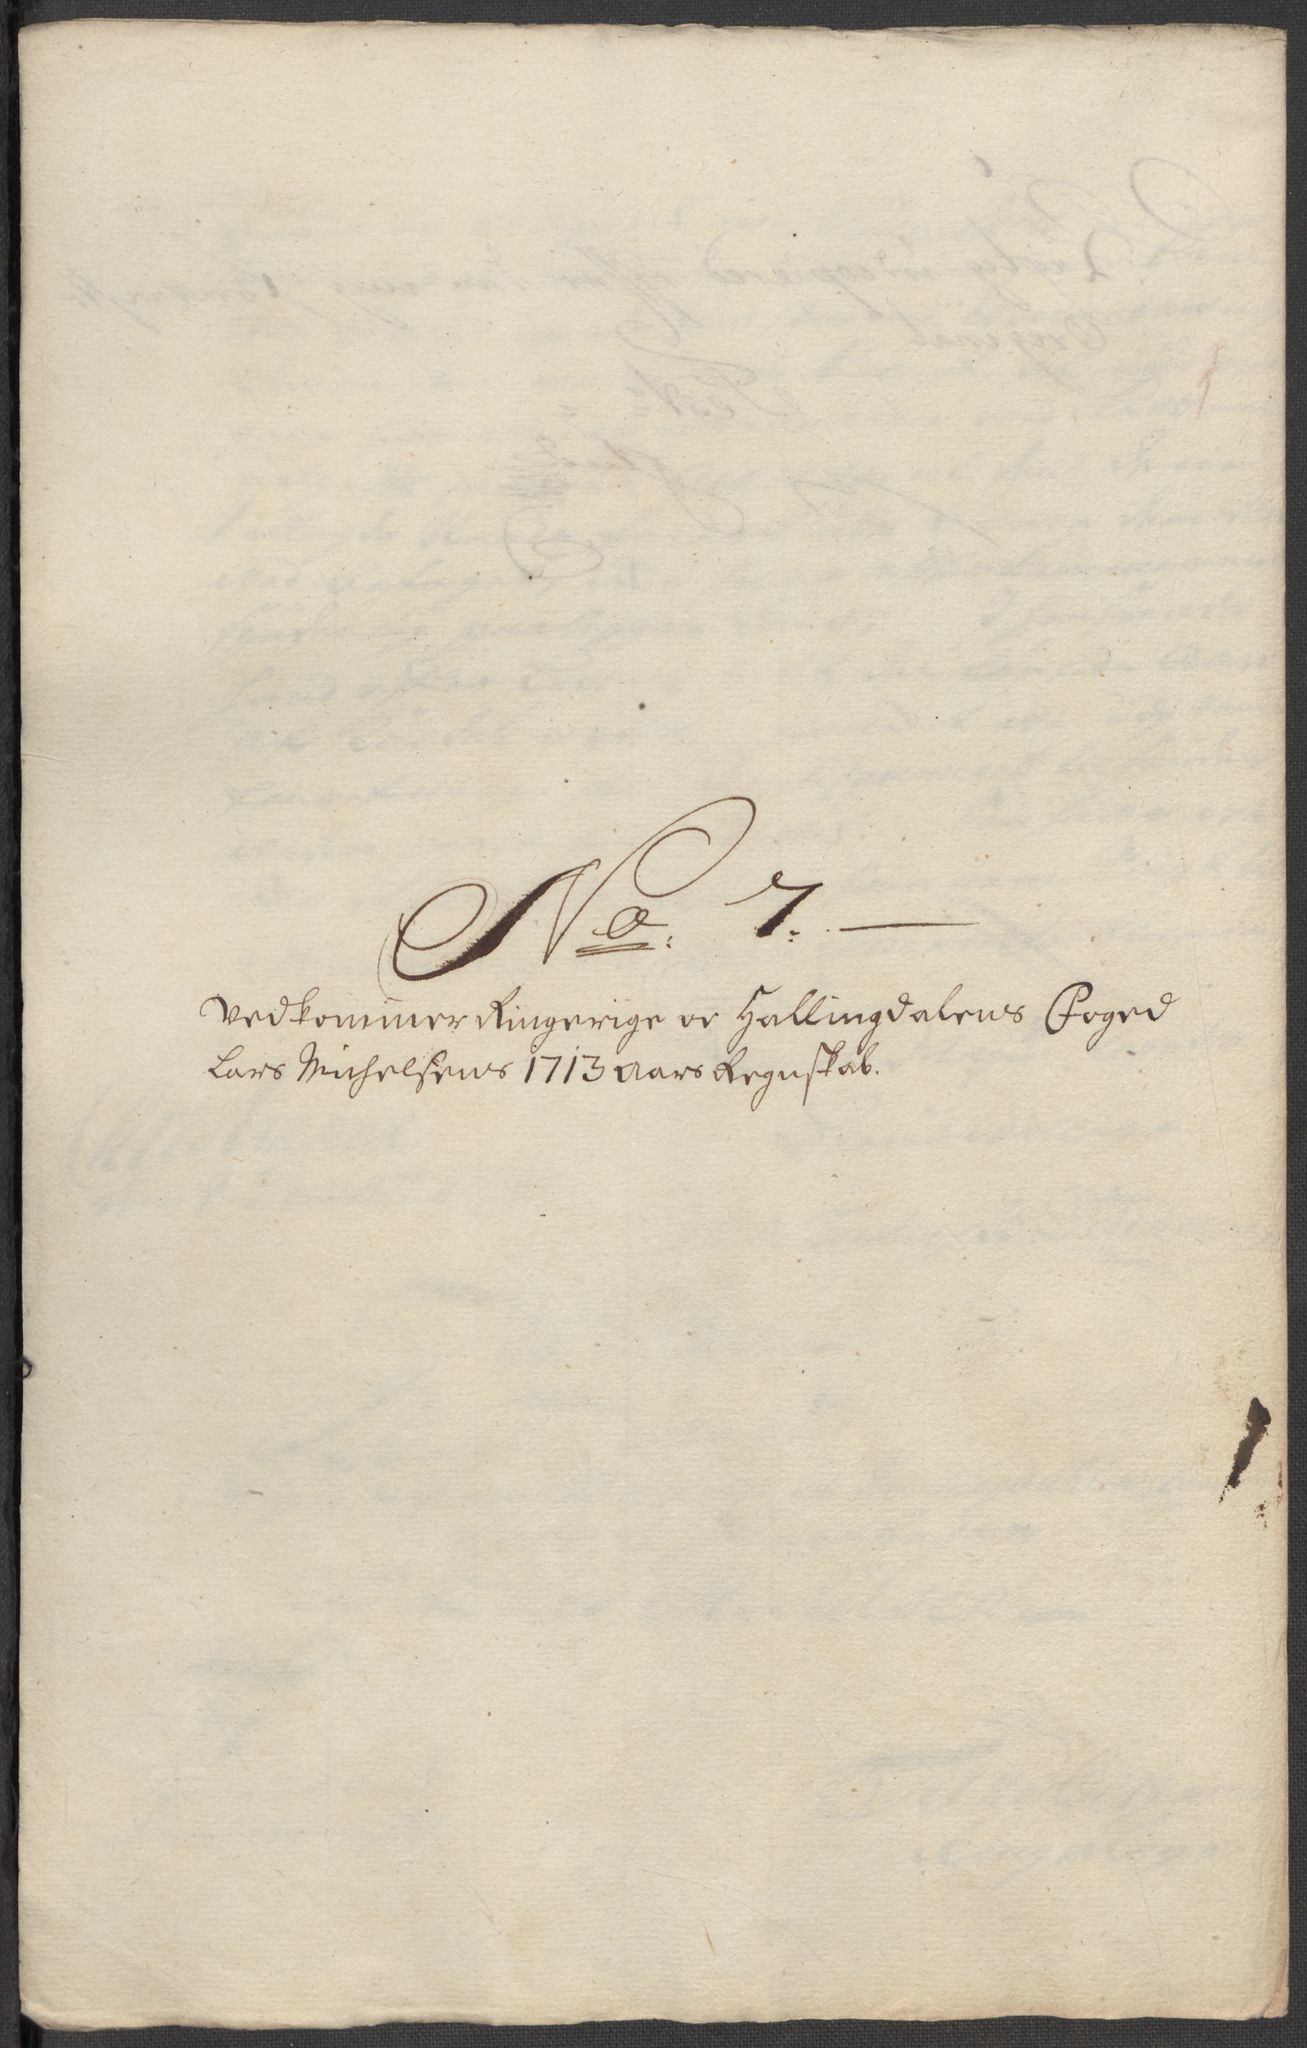 No. 7.
Vedkommer Ringerige oc Hallingdalens Foged
Lars Michelsens 1713 Aars Regnskab.